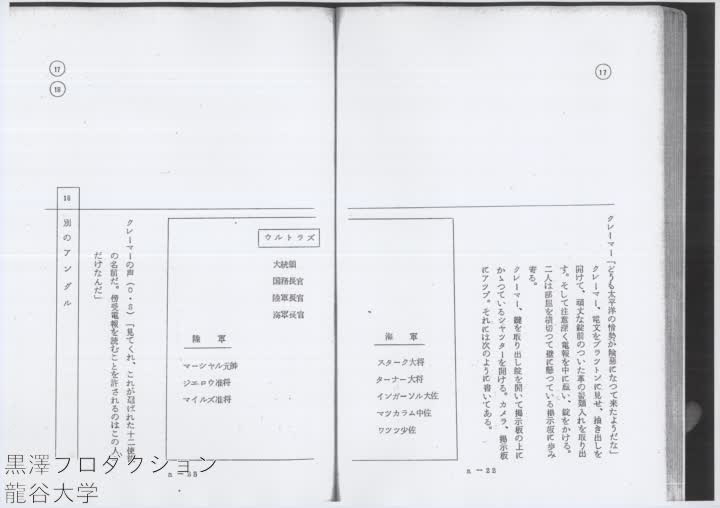 17
クレーマー「どうも太平洋の情勢が険悪になつて来たようだな」
クレーマー、電文をブラツトンに見せ、抽き出しを
開けて、頑丈な錠前のついた革の書類入れを取り出
す。そして注意深く電報を中に蔵い、錠をかける。
二人は部屋を横切つて壁に懸つている掲示板に歩み
寄る。
クレーマー、鍵を取り出し錠を開いて掲示板の上に
かゝつているシヤツターを開ける。カメラ、掲示板
にアツプ。それには次のように書いてある。
海軍
スターク大将
ターナー大将
インガーソル大佐
マツカラム中佐
ワツツ少佐
a－22
17
18
ウルトラズ
大統領
国務長官
陸軍長官
海軍長官
陸軍
マーシヤル元帥
ジエロウ准将
マイルズ准将
クレーマーの声（O・S）「見てくれ、これが選ばれた十二使徒
の名前だ。傍受電報を読むことを許されるのはこの人
だけなんだ」
18 別のアングル
黒澤プロダクション
龍谷大学